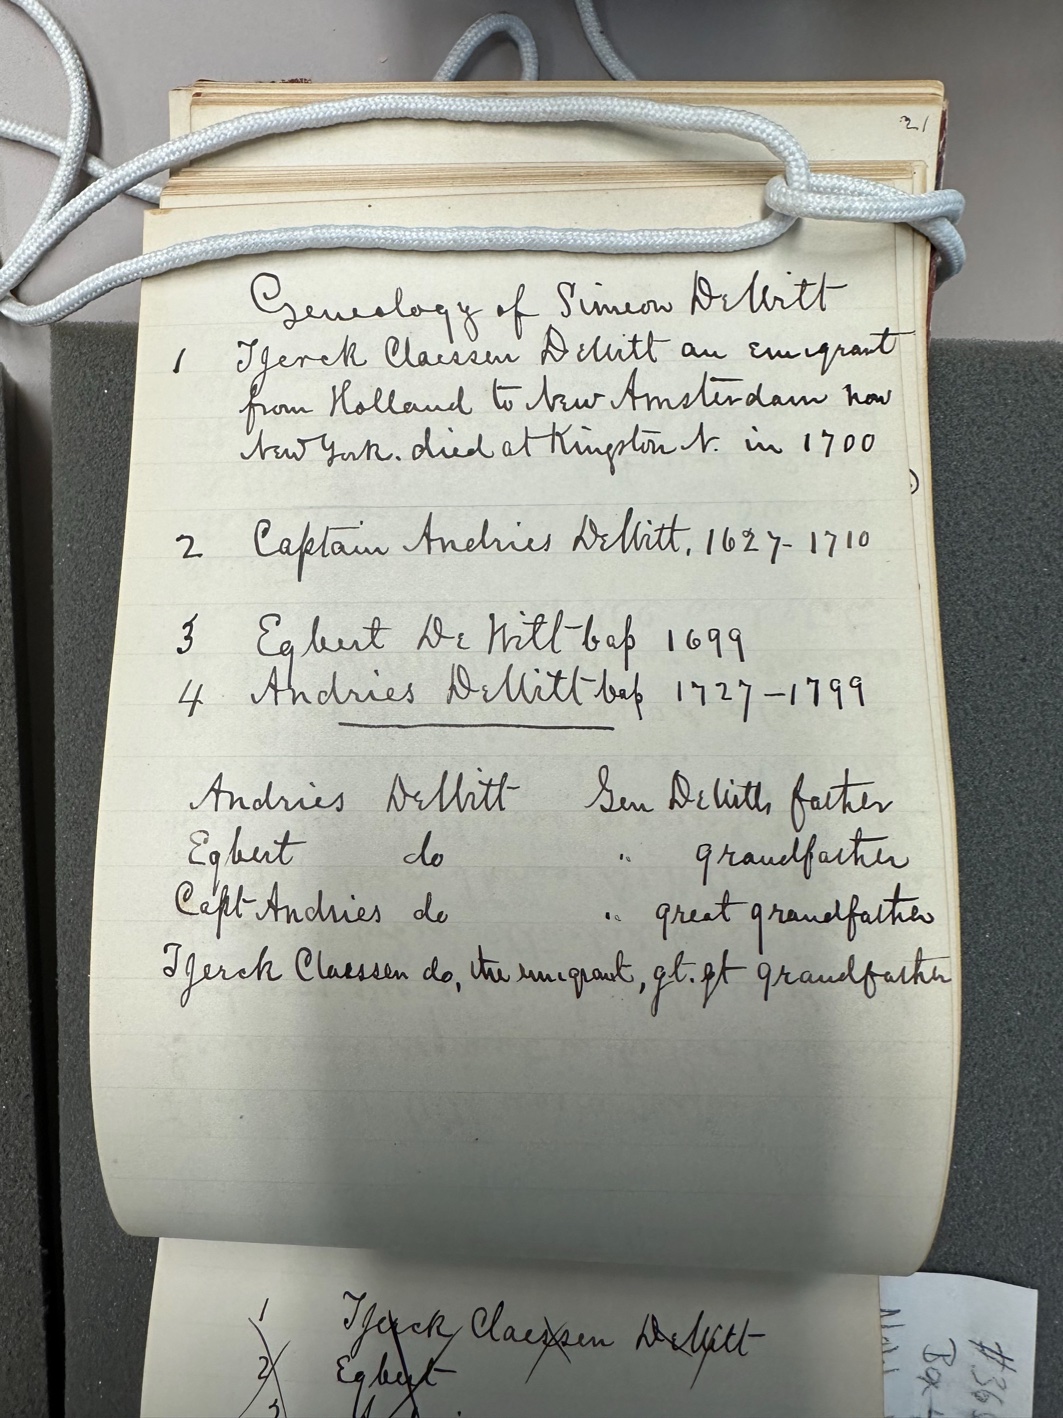 21
Genealogy of Simeon DeWitt
1 Tjerck Claessen DeWitt an emigrant
from Holland to New Amsterdam now
New York. died at Kingston N. in 1700
2 Captain Andries DeWitt, 1627-1710
3 Egbert De Witt bap 1699
4 Andries DeWitt bap 1727-1799
Andries DeWitt Gen DeWitts father
Egbert do " grandfather
Capt Andries do " great grandfather
Tjerck Claessen do, the emigrant, gt. gt grandfather
1 Tjerck Claessen DeWitt
2 Egbert
3
#36
Box